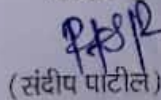 (संदीप पाटील)